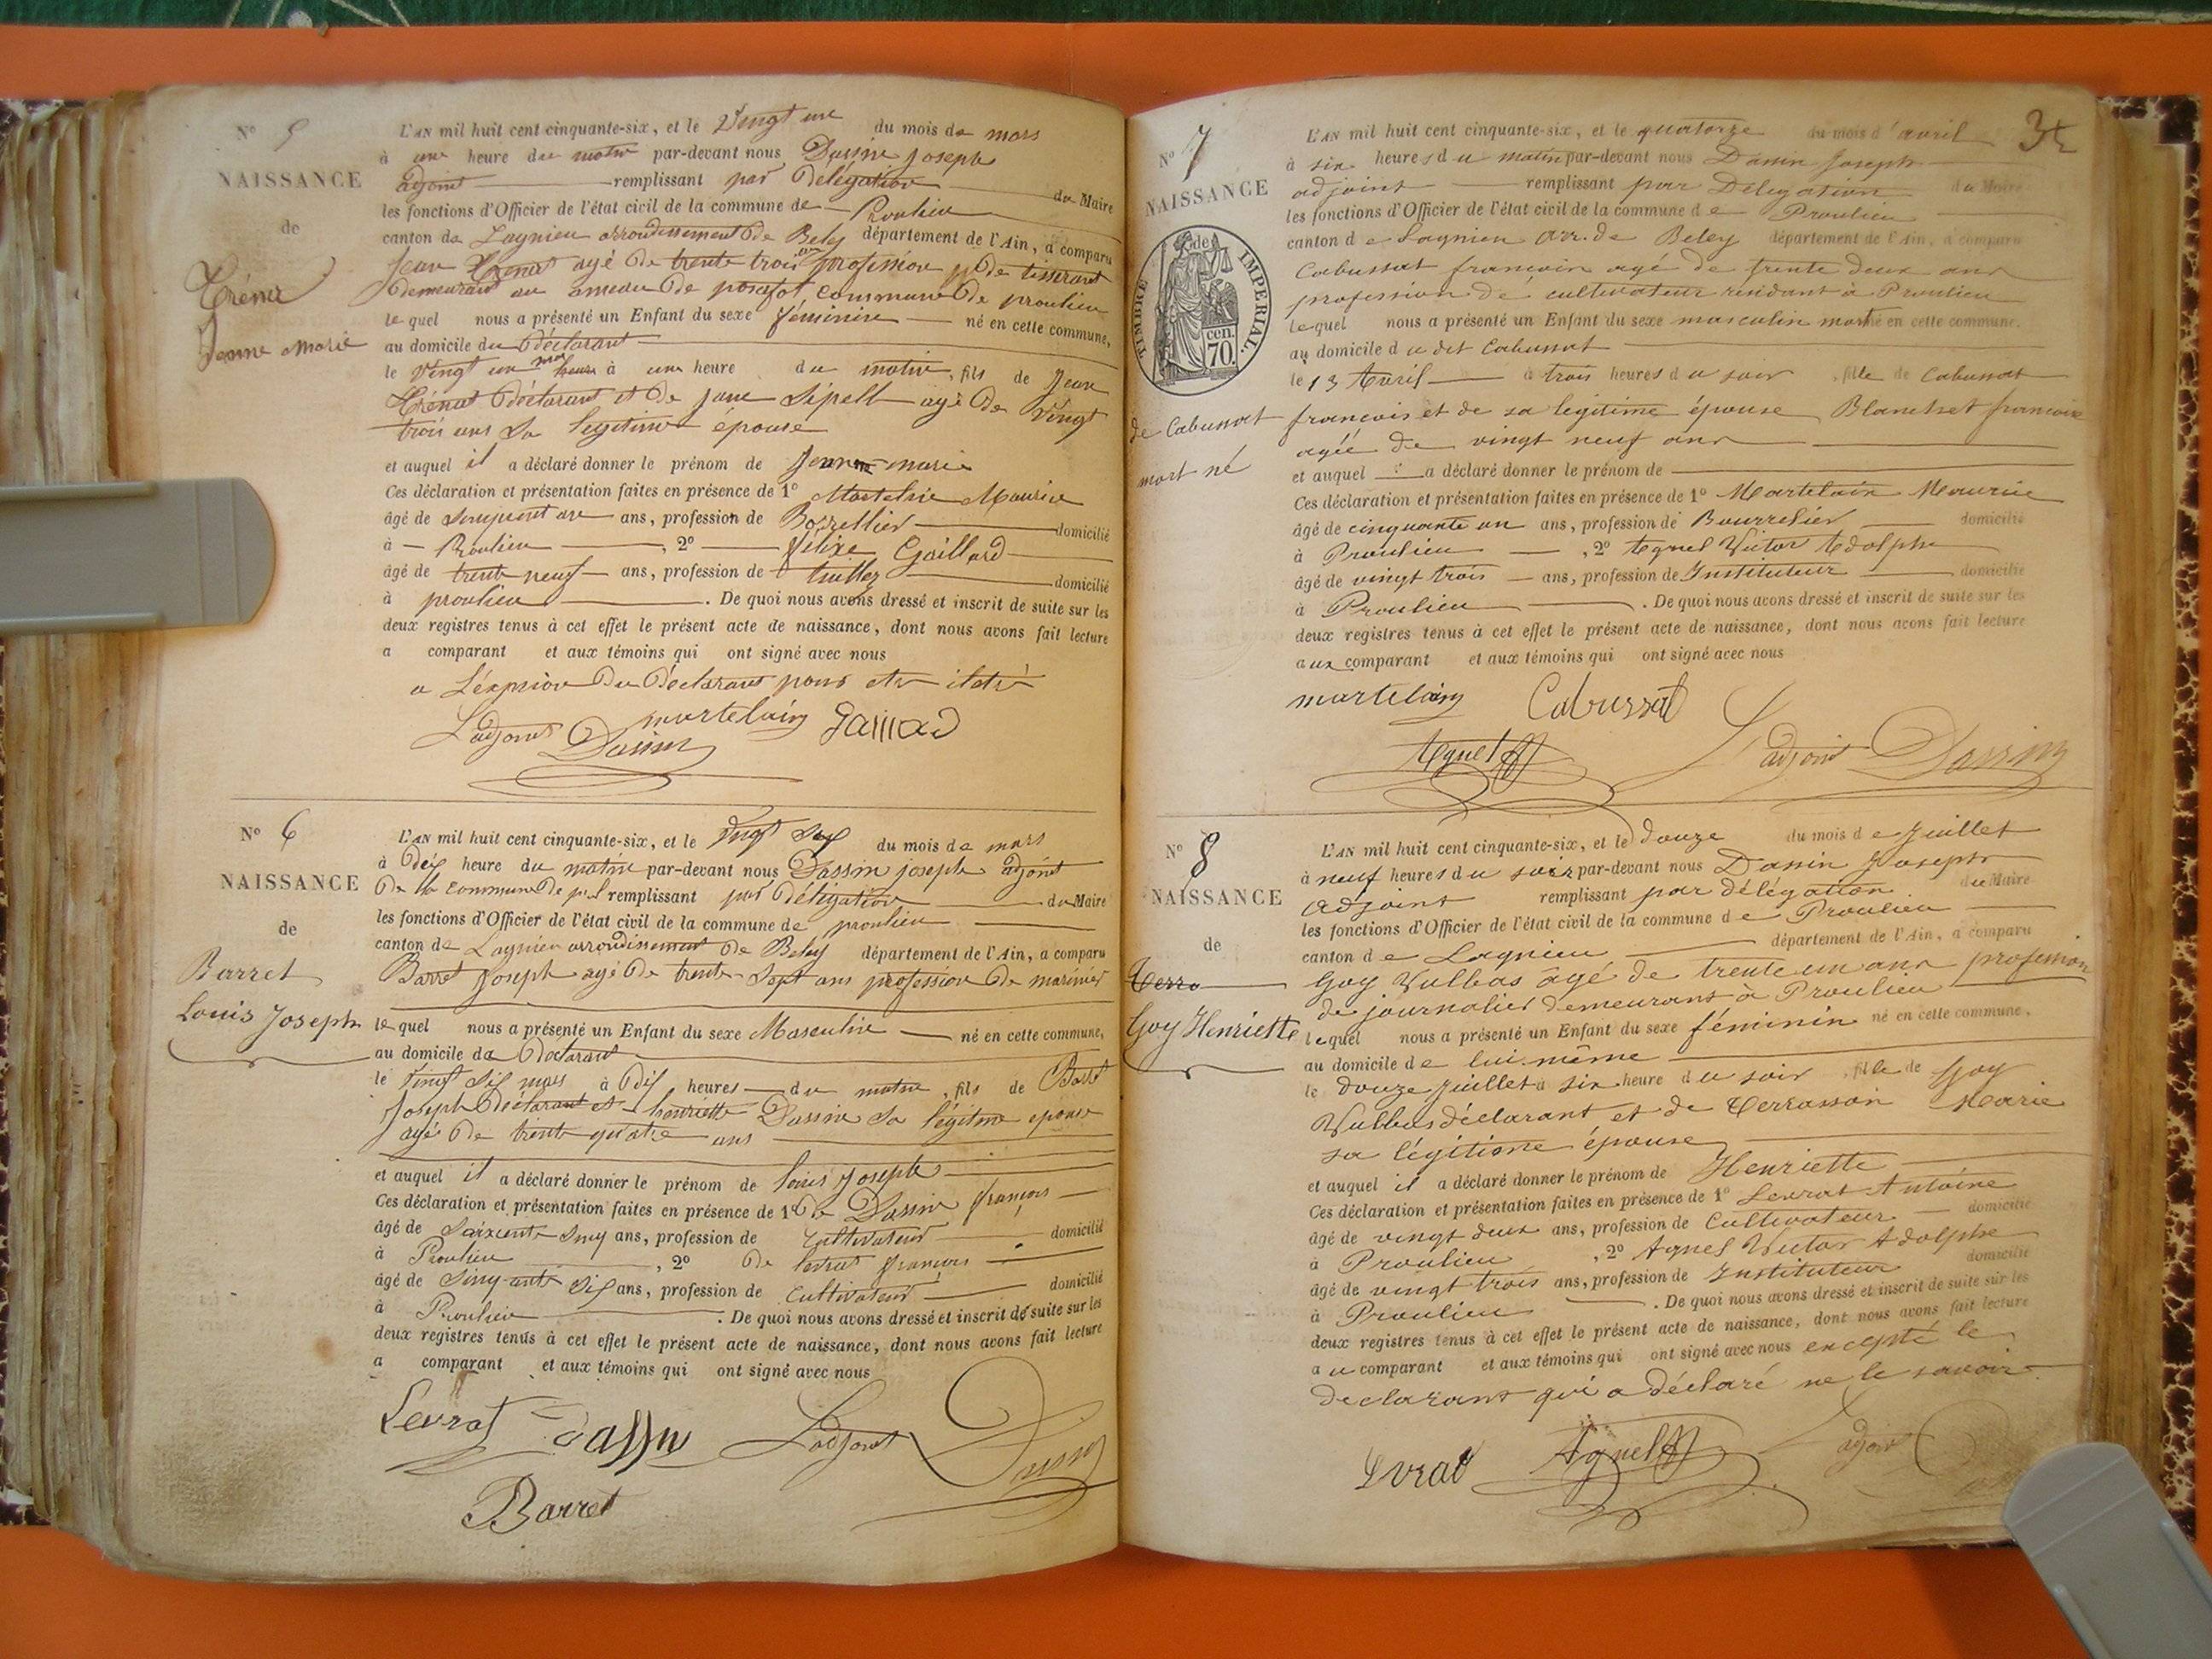 N° 5
NAISSANCE
de
Trénat
Jeanne Marie
L'AN mil huit cent cinquante-six, et le Vingt un du mois de mars
à une heure du matin par-devant nous Dassin Joseph
adjoint remplissant par Délégation du Maire
les fonctions d'Officier de l'état civil de la commune de Proulieu
canton de Lagnieu arrondissement de Beley département de l'Ain, a comparu
Jean Trénat agé de trente trois ans profession de tisserant
demeurant au ameau de posafol commune de proulieu
lequel nous a présenté un Enfant du sexe féminin né en cette commune,
au domicile du déclarant
le vingt un mars à une heure du matin, fils de Jean
Trénat déclarant et de Jane Sipell agé de vingt
trois ans sa legitime épouse
et auquel il a déclaré donner le prénom de Jeanne marie
Ces déclaration et présentation faites en présence de 1° Martelain Maurice
âgé de ans, profession de Borrellier domicilié
à Proulieu, 2° félixe Gaillard
âgé de trente neuf ans, profession de domicilié
à proulieu. De quoi nous avons dressé et inscrit de suite sur les
deux registres tenus à cet effet le présent acte de naissance, dont nous avons fait lecture
a comparant et aux témoins qui ont signé avec nous
a Déclarant pour
martelain Gaillad
L'adjoint Dassin
N° 6
NAISSANCE
de
Barret
Louis Joseph
L'AN mil huit cent cinquante-six, et le Vingt Six du mois de mars
à Dix heure du matin par-devant nous Dassin joseph adjoint
De la commune de remplissant par Délégation du Maire
les fonctions d'Officier de l'état civil de la commune de proulieu
canton de Lagnieu arrondissement de Beley département de l'Ain, a comparu
Barret Joseph agé de trente Sept ans profession de marinier
lequel nous a présenté un Enfant du sexe Masculin né en cette commune,
au domicile de Déclarant
le Vingt Six mars à Dix heures du matin, fils de Barret
Joseph Déclarant et henriette Dassin sa légitime epouse
agé de trente quatre ans
et auquel il a déclaré donner le prénom de louis Joseph
Ces déclaration et présentation faites en présence de 1° de Dassin françois
âgé de ans, profession de Cultivateur domicilié
à Proulieu, 2° De levrat françois
âgé de Sinquante Six ans, profession de Cultivateur domicilié
à Proulieu. De quoi nous avons dressé et inscrit de suite sur les
deux registres tenus à cet effet le présent acte de naissance, dont nous avons fait lecture
a comparant et aux témoins qui ont signé avec nous
Levrat Dassin L'adjoint Dassin
Barret
34
N° 7
NAISSANCE
TIMBRE IMPERIAL.
de
70. cen
de Cabussat
mort né
L'AN mil huit cent cinquante-six, et le quatorze du mois d'avril
à six heures du matin par-devant nous Dassin Joseph
adjoint remplissant par Délégation du Maire
les fonctions d'Officier de l'état civil de la commune de Proulieu
canton de Lagnieu arr. de Beley département de l'Ain, a comparu
Cabussat françois agé de trente deux ans
profession de cultivateur residant à Proulieu
lequel nous a présenté un Enfant du sexe masculin mort né en cette commune,
au domicile du dit Cabussat
le 13 Avril à trois heures du soir, fille de Cabussat
françois et de sa légitime épouse Blanchet françoise
agéé de vingt neuf ans
et auquel a déclaré donner le prénom de
Ces déclaration et présentation faites en présence de 1° Martelain Maurice
âgé de cinquante un ans, profession de Bourrelier domicilié
à Proulieu, 2° Agnel Victor Adolphe
âgé de vingt trois ans, profession de Instituteur domicilié
à Proulieu. De quoi nous avons dressé et inscrit de suite sur les
deux registres tenus à cet effet le présent acte de naissance, dont nous avons fait lecture
aux comparant et aux témoins qui ont signé avec nous
martelain Cabussat
Agnel L'adjoint Dassin
N° 8
NAISSANCE
de
Terra
Goy Henriette
L'AN mil huit cent cinquante-six, et le douze du mois de Juillet
à neuf heures du soir par-devant nous Dassin Joseph
adjoint remplissant par délégation du Maire
les fonctions d'Officier de l'état civil de la commune de Proulieu
canton de Lagnieu département de l'Ain, a comparu
Goy Vulbas âgé de trente un ans profession
de journalier demeurant à Proulieu
lequel nous a présenté un Enfant du sexe féminin né en cette commune,
au domicile de lui même
le douze Juillet à six heure du soir, fille de Goy
Vulbas déclarant et de Terrasson Marie
sa légitime épouse
et auquel il a déclaré donner le prénom de Henriette
Ces déclaration et présentation faites en présence de 1° Levrat Antoine
âgé de vingt deux ans, profession de Cultivateur domicilié
à Proulieu, 2° Agnel Victor Adolphe
âgé de vingt trois ans, profession de Instituteur domicilié
à Proulieu. De quoi nous avons dressé et inscrit de suite sur les
deux registres tenus à cet effet le présent acte de naissance, dont nous avons fait lecture
au comparant et aux témoins qui ont signé avec nous excepté le
declarant qui a déclaré ne le savoir.
Levrat Agnel L'adjoint